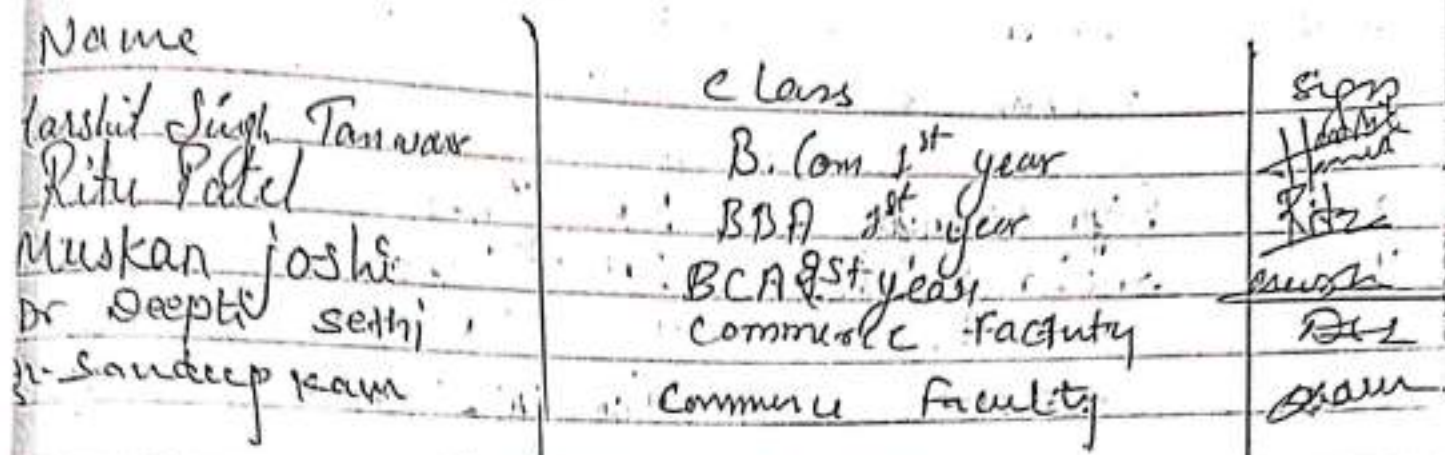 Name class sign
arshit Singh Tanwar B.Com 1st year
Ritu Patel BBA 1st year Ritu
Muskan joshi BCA 1st year
Dr Deepti Sethi Commerce Facluty
Sandeep Kaur Commerce Faculty